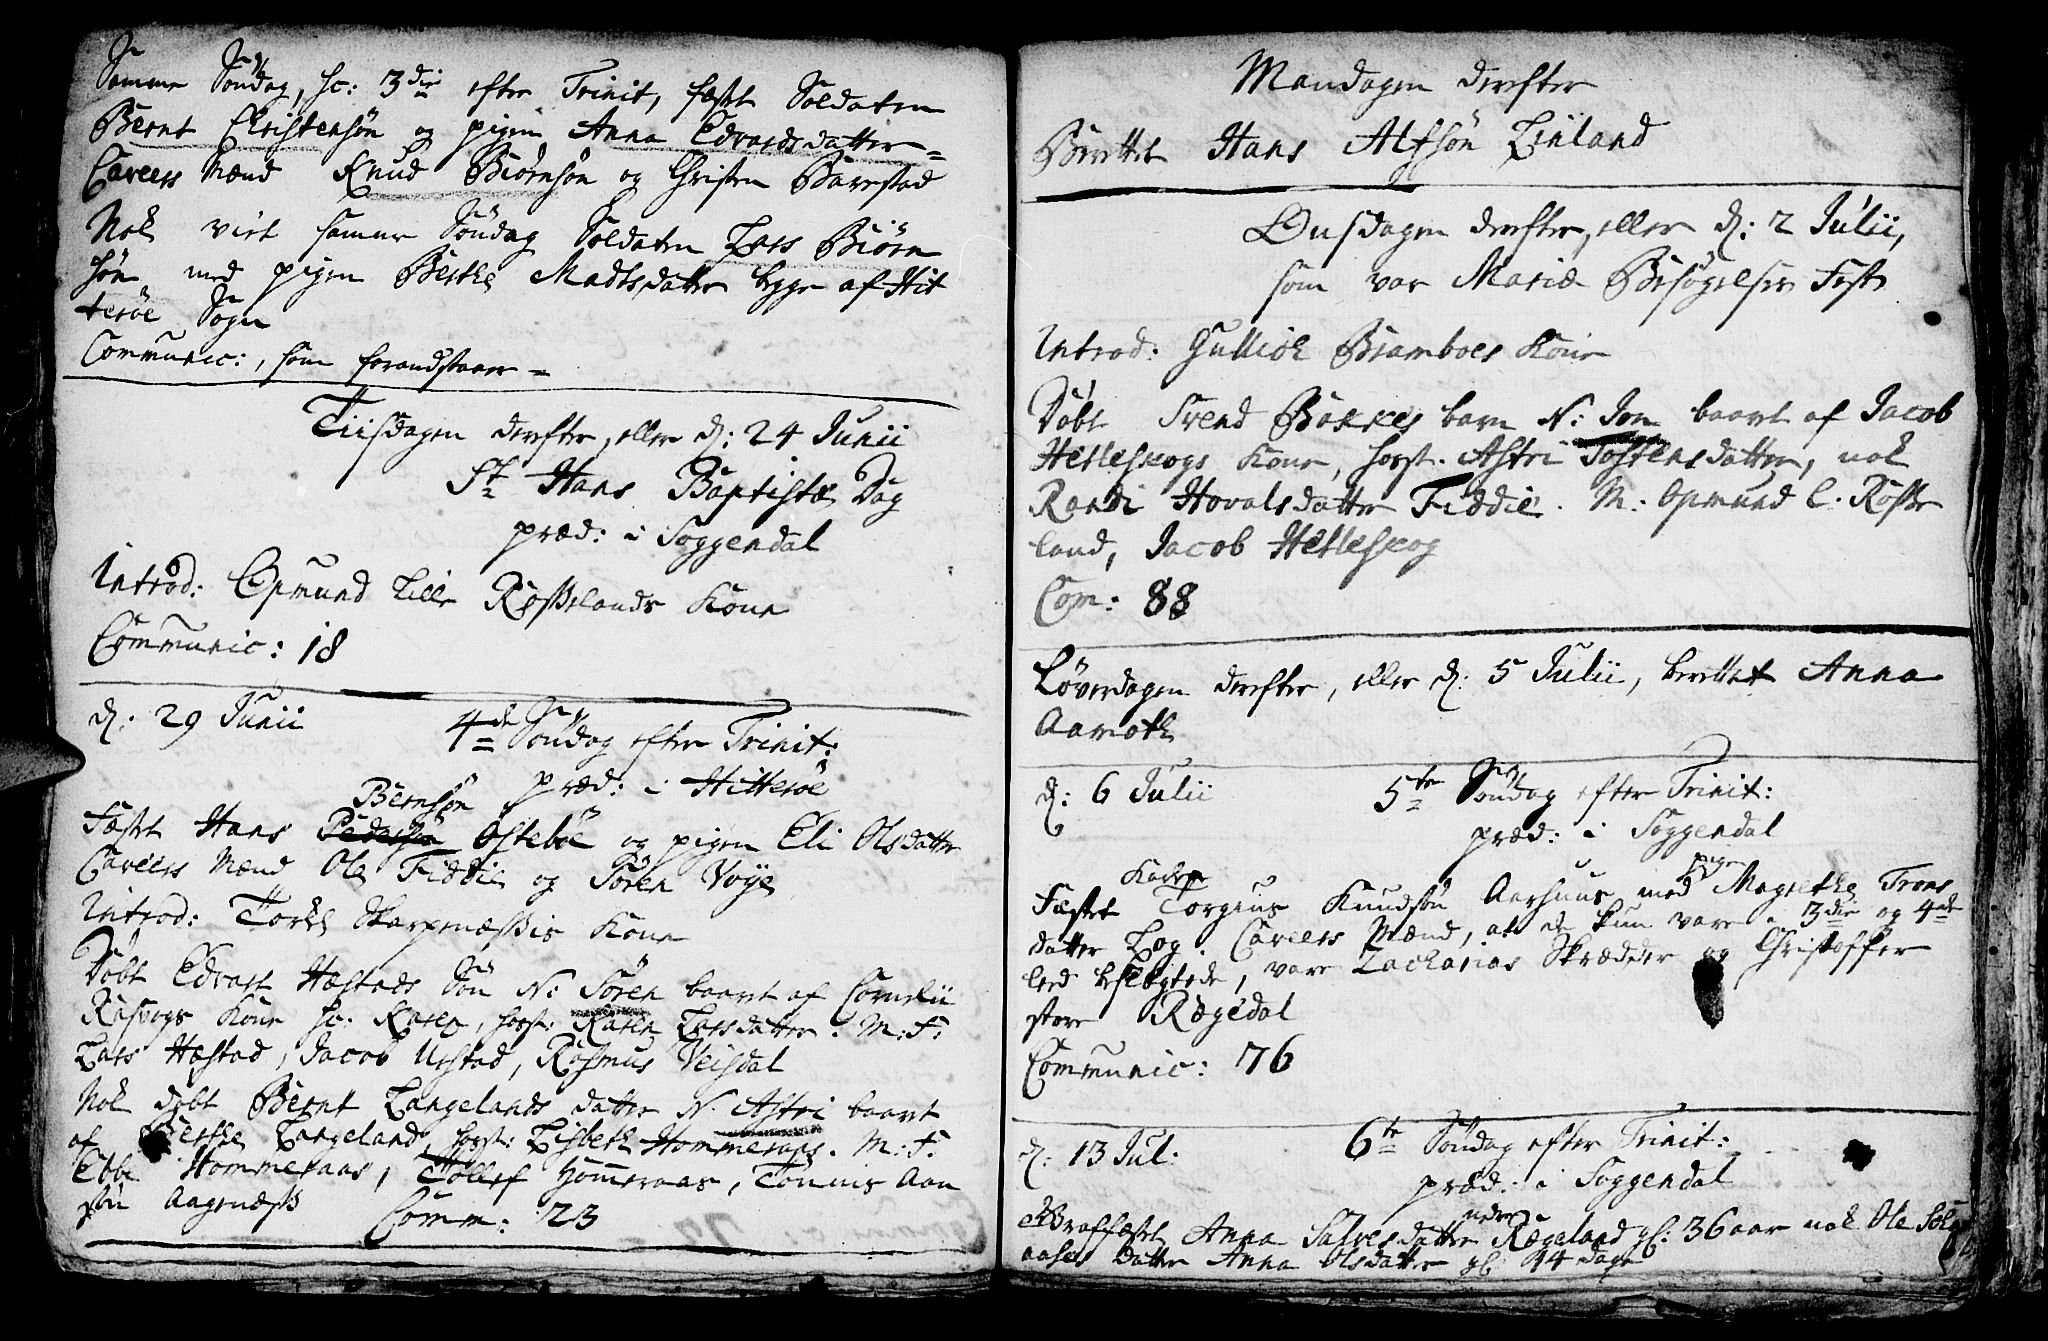 Samme Søndag, sc: 3die efter Trinit, fæstet Soldaten
Bernt Christensøn og pigen Anna Edvardsdatter =
Caveers Mænd Knud Biørnsøn og Christen Barestad
Nok viet samme Søndag Soldaten Lars Biørn
søn med pigen Berthe Madtsdatter begge af Hit
terøe Sogn
Communic: , som forandstaaer =
Tiisdagen derefter, eller d: 24 Junii
St Hans Baptistæ Dag
præd: i Soggendal
Introd: Opmund Lille Røsselands Kone
Communic: 18
d: 29 Junii 4de Søndag efter Trinit:
præd: i Hitterøe
Bernsøn
Fæstet Hans Pedersøn Ostebøe og pigen Eli Olsdatter
Caveers Mænd Ole Fiddie og Søren Voye
Introd: Torkel Skarpenæssis Kone
Døbt Edvart Hæstads Søn N: Søren baaret af Cornelii
Rasvogs Kone sc: Karen, hosst: Karen Larsdatter. M: F:
Lars Hæstad, Jacob Urstad, Rasmus Veisdal
Nok døbt Bernt Langelands datter N. Astri baaret
af Berthe Langeland, hosst: Lisbeth Hommeraas. M: F.
Ebbe Hommeraas, Tollef Hommeraas, Tønnis Aan
søn Aagenæss Comm: 23
Mandagen derefter
Berettet Hans Alfsøn Linland
Onsdagen derefter, eller d: 2 Julii,
som var Mariæ Besøgelses Fest
Introd: Gulliok Bramboes Kone
Døbt Svend Bakkes barn N: Jon baaret af Jacob
Hetleskogs Kone, hosst. Astri Tostensdatter, nok
Randi Hovalsdatter Fiddie. M: Opmund L. Røsse
land, Jacob Hetleskog
Com: 88
Løverdagen derefter, eller d: 5 Julii, berettet Anna
Aamoth
d: 6 Julii 5te Søndag efter Trinit:
præd: i Soggendal
Karlen pigen
Fæstet Torgius Knudsøn Aarhuus med Magrethe Trons
datter Log. Caveers Mænd, at de kun vare i 3die og 4de
led beslegtede, vare Zacharias Skrædder og Christoffer
store Rægedal
Communic: 76
d: 13 Jul: 6te Søndag efter Trinit:
præd: i Soggendal
nedre
Gravfæstet Anna Salvesdatter Rægeland gl: 36 aar nok Ole
aases Datter Anna Olsdatter gl 14 dage